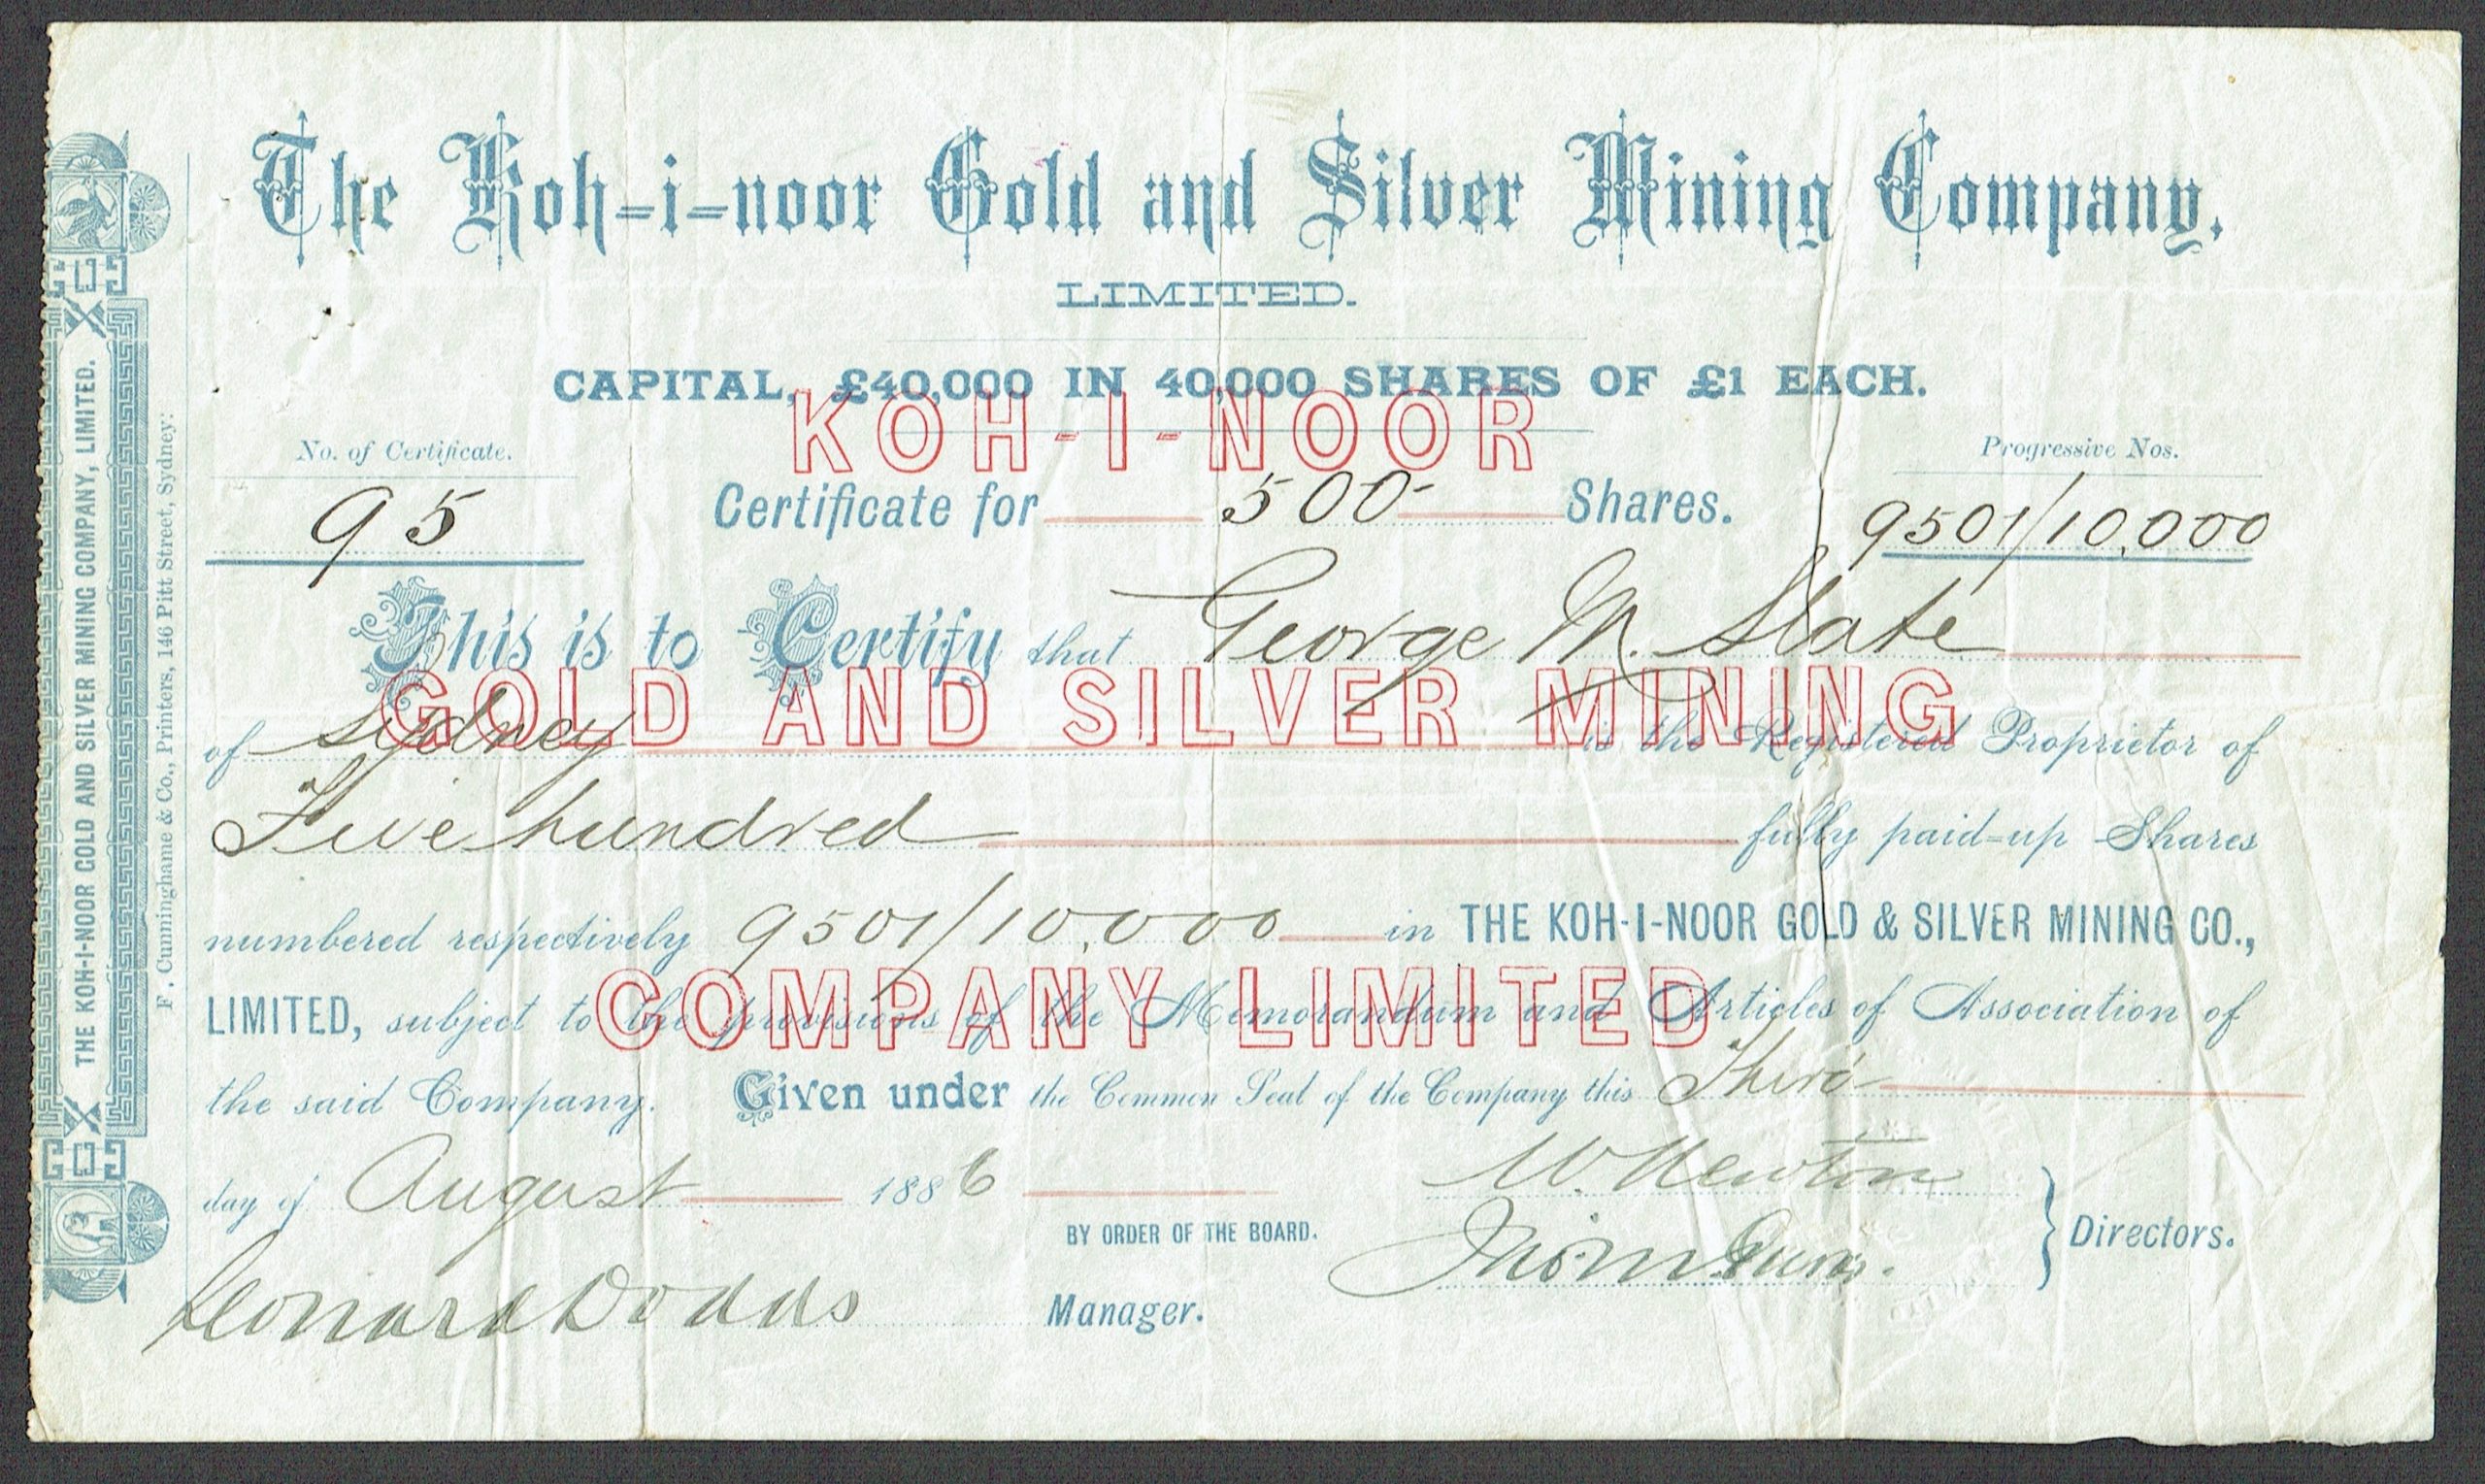 The Koh-i-noor Gold and Silver Mining Company,
LIMITED.
CAPITAL, £40,000 IN 40,000 SHARES OF £1 EACH.
KOH-I-NOOR
No. of Certificate.
Progressive Nos.
95
Certificate for 500 Shares.
9501/10,000
This is to Certify that George M. Slate
GOLD AND SILVER MINING
of Sydney is the Registered Proprietor of
Five hundred fully paid-up Shares
numbered respectively 9501/10,000 in THE KOH-I-NOOR GOLD & SILVER MINING CO.,
COMPANY LIMITED
LIMITED, subject to the provisions of the Memorandum and Articles of Association of
the said Company. Given under the Common Seal of the Company this Third
day of August 1886
W. Newton
BY ORDER OF THE BOARD.
Directors.
Leonard Dodds Manager.
THE KOH-I-NOOR GOLD AND SILVER MINING COMPANY, LIMITED.
F. Cunninghame & Co., Printers, 146 Pitt Street, Sydney: